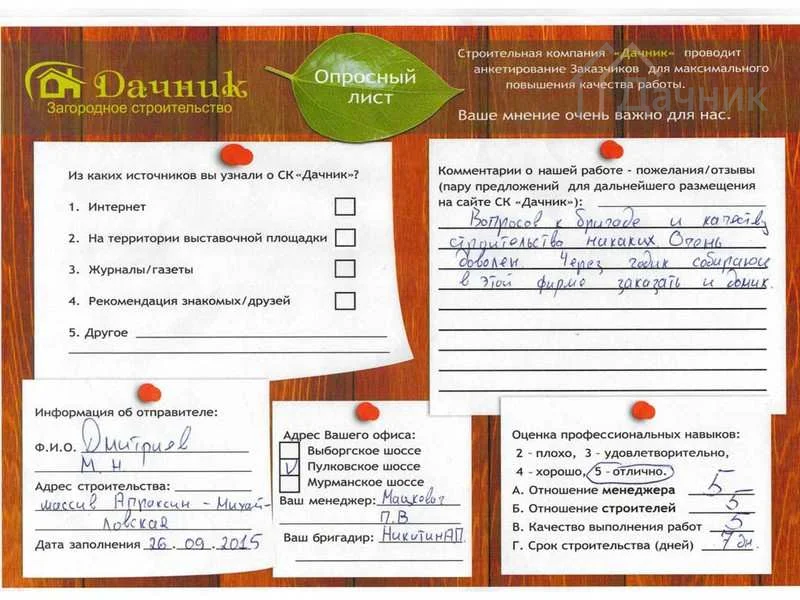 Дачник
Загородное строительство
Опросный
лист
Строительная компания «Дачник» проводит
анкетирование Заказчиков для максимального
повышения качества работы.
Ваше мнение очень важно для нас.
Дачник
Из каких источников вы узнали о СК «Дачник»?
1. Интернет
2. На территории выставочной площадки
3. Журналы/газеты
4. Рекомендация знакомых/друзей
5. Другое
Комментарии о нашей работе - пожелания/отзывы
(пару предложений для дальнейшего размещения
на сайте СК «Дачник»):
Вопросов к бригаде и качеству
строительства никаких. Очень
доволен. Через годик собираюсь
в этой фирме заказать и домик.
Информация об отправителе:
Ф.И.О. Дмитриев
М. Н
Адрес строительства:
массив Апраксин - Михай-
ловская
Дата заполнения 26.09.2015
Адрес Вашего офиса:
Выборгское шоссе
V Пулковское шоссе
Мурманское шоссе
Ваш менеджер:
П.В
Ваш бригадир: Никитин А.П.
Оценка профессиональных навыков:
2 - плохо, 3 - удовлетворительно,
4 - хорошо, 5 - отлично.
А. Отношение менеджера 5
Б. Отношение строителей 5
В. Качество выполнения работ 5
Г. Срок строительства (дней) 7 дн.